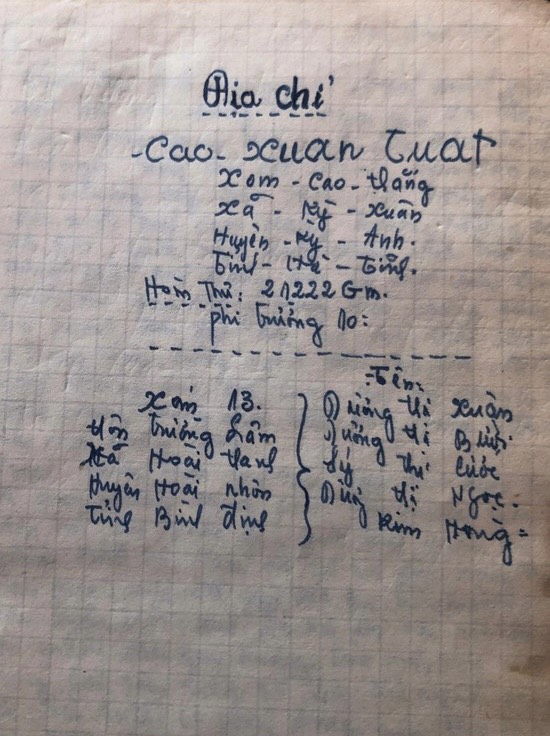 Địa chỉ
-Cao-Xuan Tuat
Xom-Cao-thắng
Xã-Kỳ-Xuân
Huyện-Kỳ-Anh.
Tỉnh-Hà-Tĩnh.
Hòm Thư: 21222 Gm.
phi trường 10:
Tên:
Xóm 13.
thôn trường Lâm
Xã Hoài thanh
Huyện Hoài nhơn
Tỉnh Bình định
thị Xuân
thị
thị Cước
thị Ngọc:
Kim Hồng=